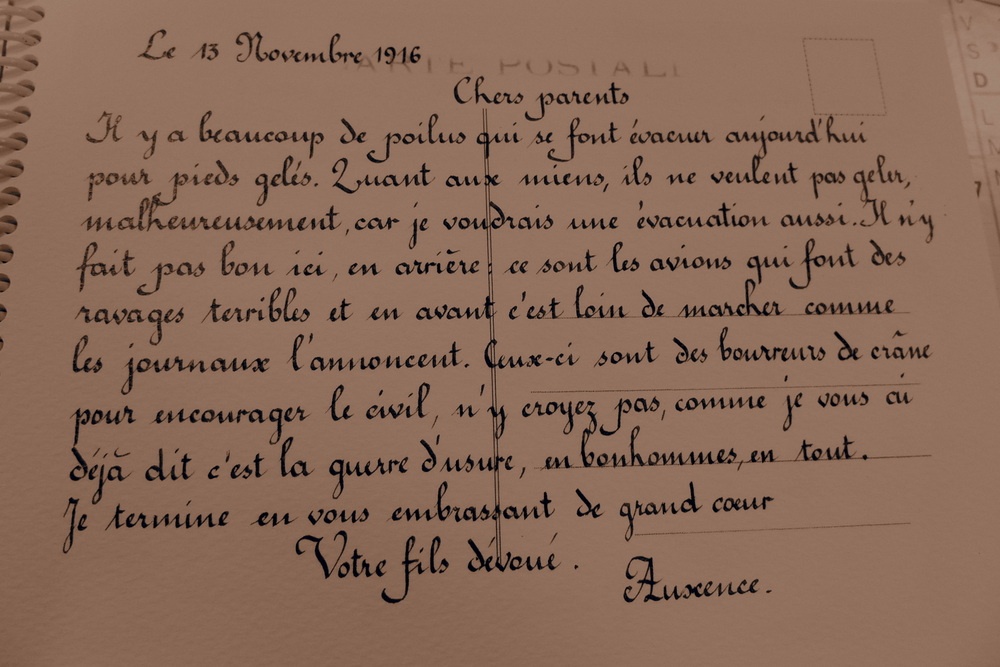 Le 13 Novembre 1916
CARTE POSTALE
Chers parents
Il y a beaucoup de poilus qui se font évacuer aujourd'hui
pour pieds gelés. Quant aux miens, ils ne veulent pas geler,
malheureusement, car je voudrais une évacuation aussi. Il n'y
fait pas bon ici, en arrière : ce sont les avions qui font des
ravages terribles et en avant c'est loin de marcher comme
les journaux l'annoncent. Ceux-ci sont des bourreurs de crâne
pour encourager le civil, n'y croyez pas, comme je vous ai
déjà dit c'est la guerre d'usure, en bonhommes, en tout.
Je termine en vous embrassant de grand cœur
Votre fils dévoué.
Auxence.
V
S
D
L
7